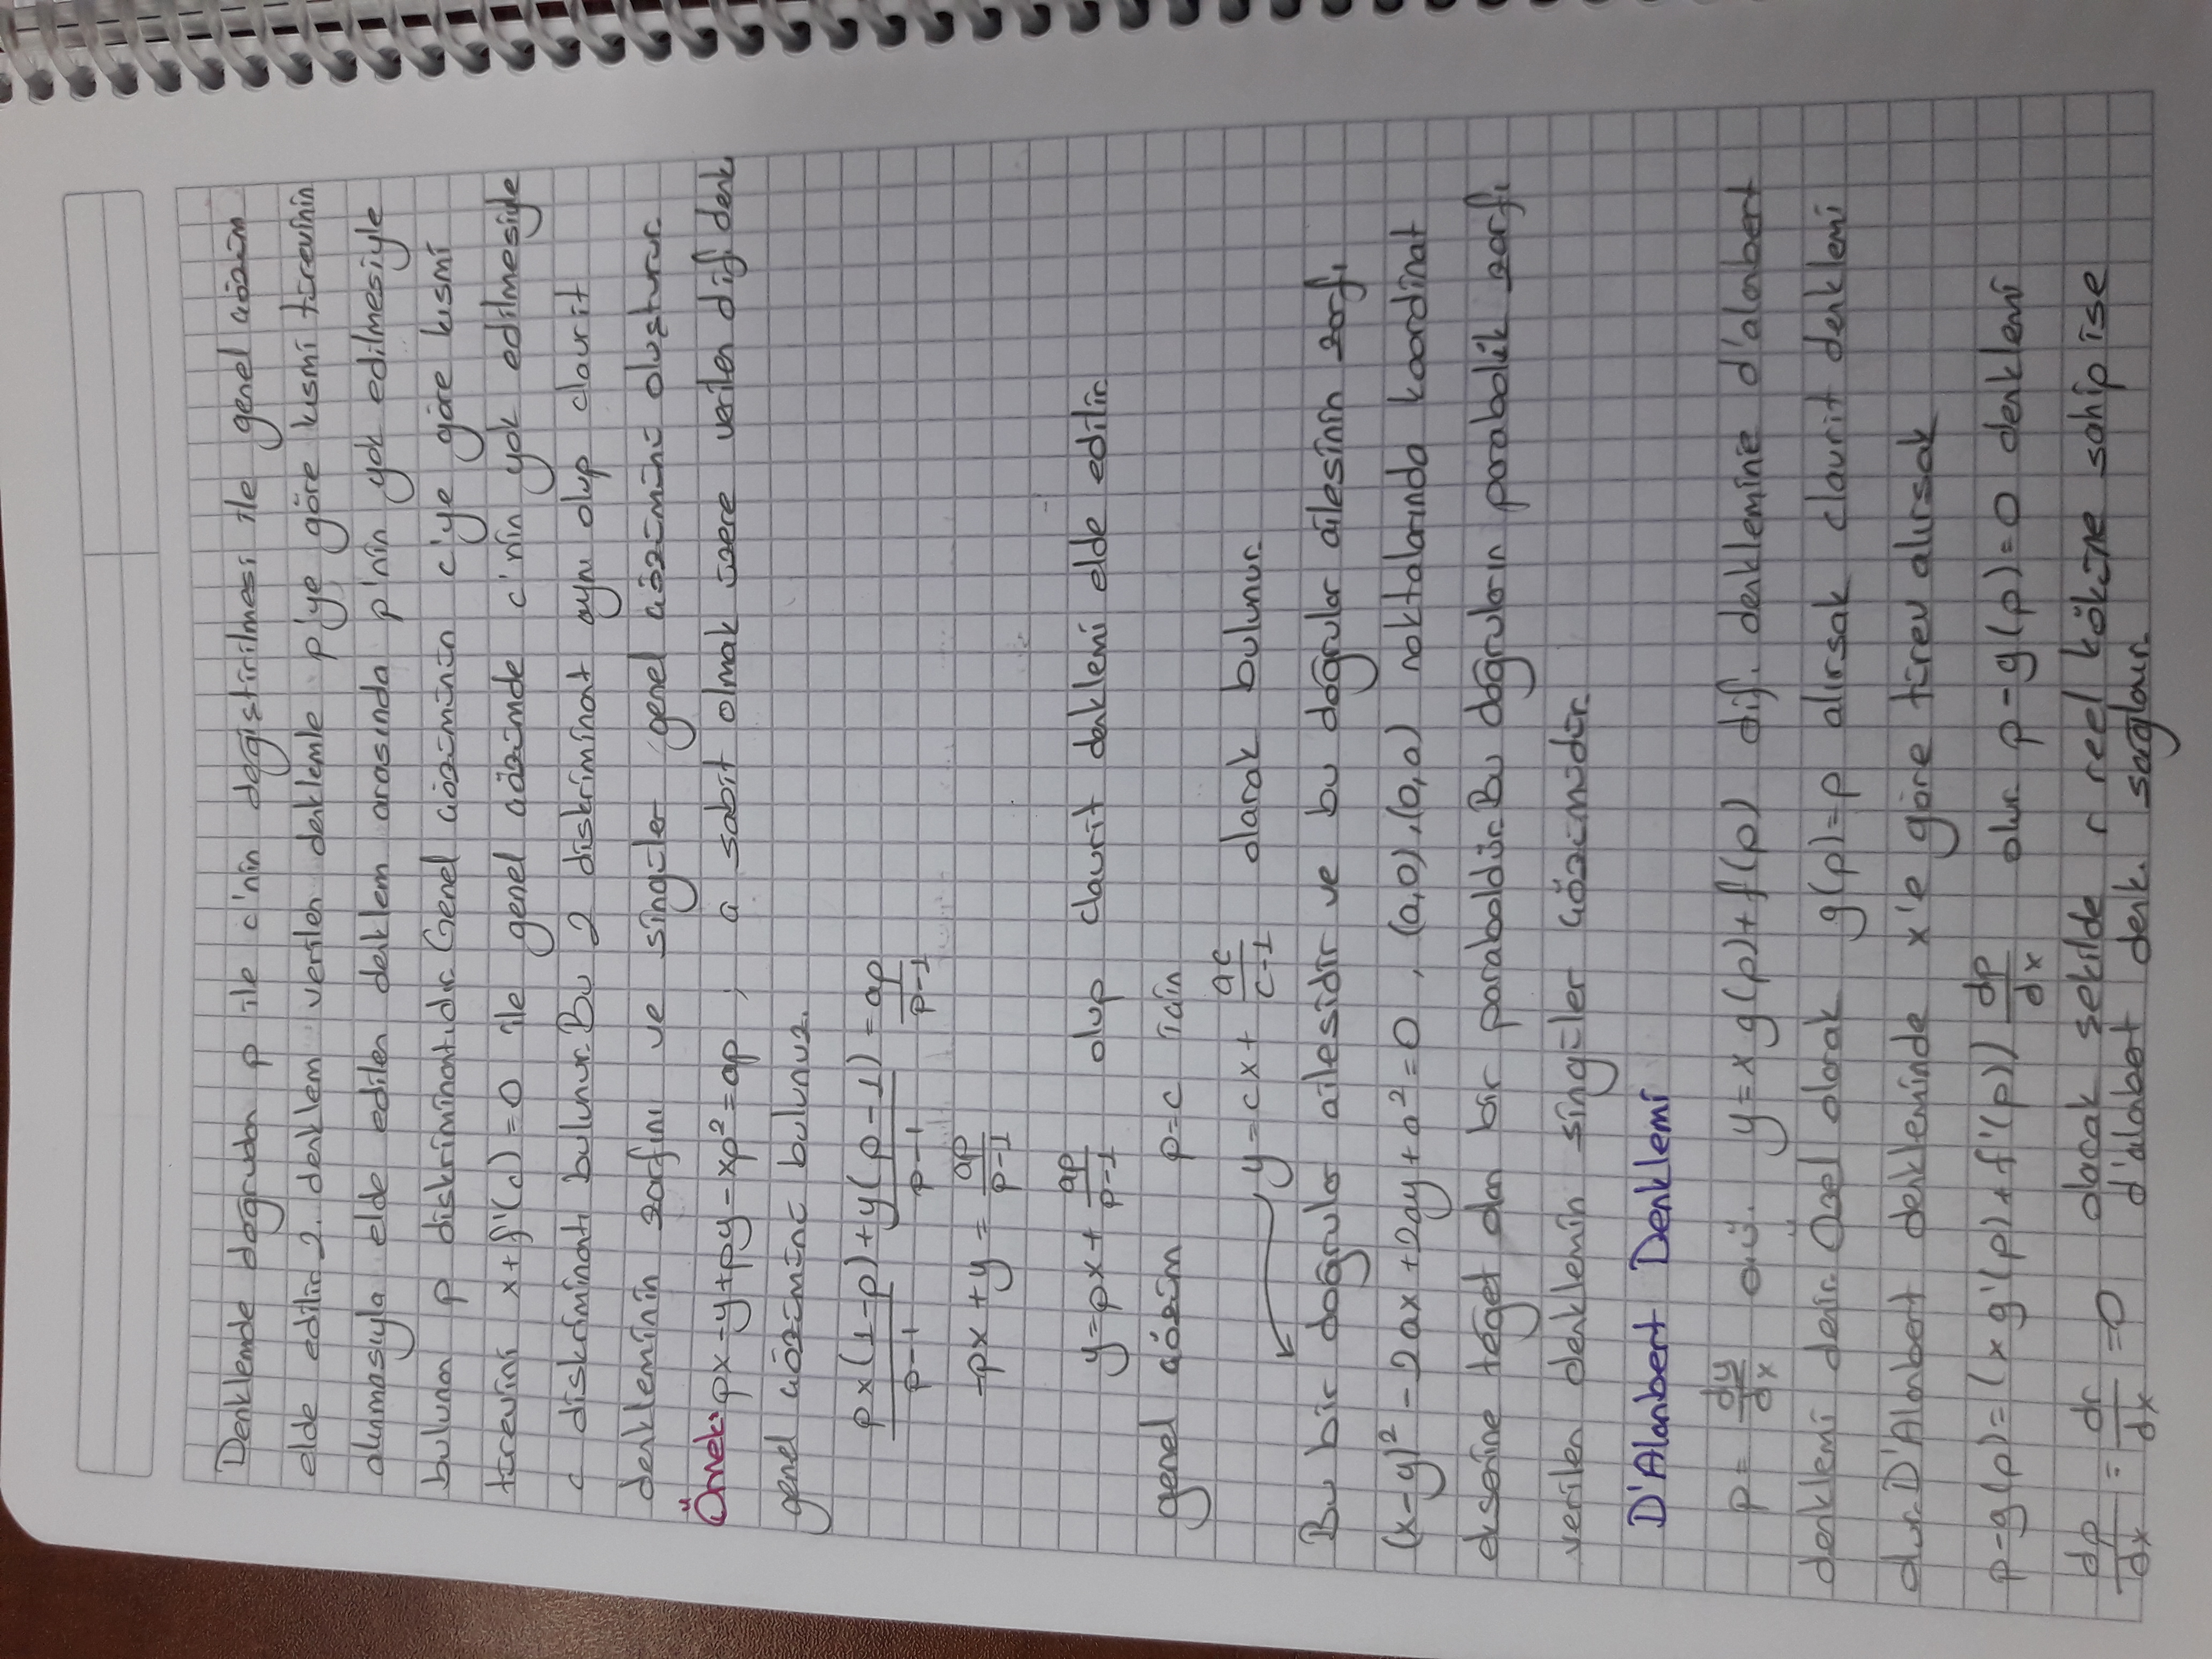 Denklemde doğrudan p ile c'nin değiştirilmesi ile genel çözüm
elde edilir 2. denklem verilen denklemle p'ye göre kısmi türevinin
alınmasıyla elde edilen denklem arasında p'nin yok edilmesiyle
bulunan p diskriminantıdır. Genel çözümünün c'ye göre kısmi
türevini x+f'(c)=0 ile genel çözümde c'nin yok edilmesiyle
c diskriminantı bulunur. Bu 2 diskriminat aynı olup claurit
denkleminin zarfını ve singüler genel çözümünü oluşturur.
Örnek: px-y+py-xp²=ap ; a sabit olmak üzere verilen dif. denk.
genel çözümünü bulunuz.
px(1-p)/p-1 + y(p-1)/p-1 = ap/p-1
-px+y = ap/p-1
y=px+ ap/p-1 olup claurit denklemi elde edilir
genel çözüm p=c için
y=cx+ ac/c-1 olarak bulunur.
Bu bir doğrular ailesidir ve bu doğrular ailesinin zarfı
(x-y)²-2ax+2ay+a²=0 , (a,0),(0,a) noktalarında koordinat
eksenine teğet olan bir paraboldür. Bu doğruların parabolik zarfı
verilen denklemin singüler çözümüdür.
D'Alanbert Denklemi
p= dy/dx o.ü. y=x g(p)+f(p) dif. denklemine d'alanbert
denklemi denir. Özel olarak g(p)=p alırsak claurit denklemi
olur. D'Alanbert denkleminde x'e göre türev alırsak
p-g(p)=(x g'(p)+f'(p)) dp/dx olur. p-g(p)=0 denklemi
dp/dx = dr/dx =0 olacak şekilde r reel köküne sahip ise
d'alabert denk. sağlanır.